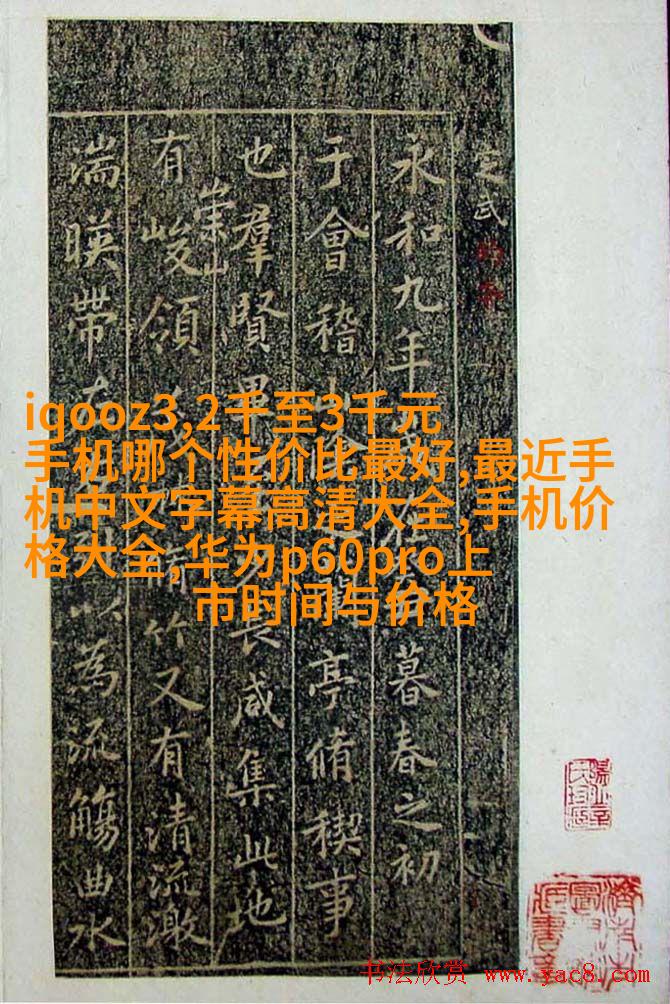 定武
永和九年在暮春之初
于會稽亭脩稧事
也羣賢畢長咸集此地
有崇山峻領竹又有清流激
湍暎帶以為流觴曲水
iqooz3,2千至3千元
手机哪个性价比最好,最近手
机中文字幕高清大全,手机价
格大全,华为p60pro上
市时间与价格
书法欣赏 www.yac8.com